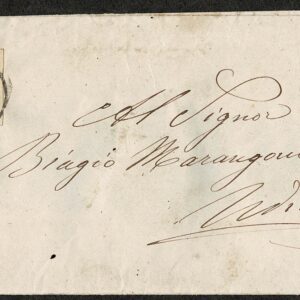 Al Signor
Biagio Marangoni
Udi